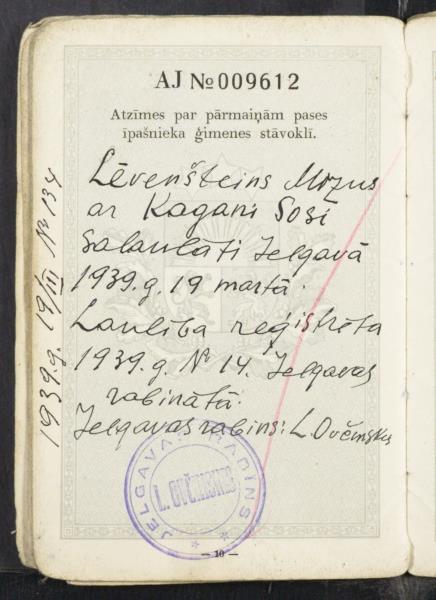 AJ № 009612
Atzīmes par pārmaiņām pases
īpašnieka ģimenes stāvoklī.
Lēvenšteins Mozus
ar Kagani Sosi
salaulāti Jelgavā
1939.g. 19 martā.
Laulība reģistrēta
1939.g. № 14. Jelgavas
rabinātā.
Jelgavas rabins: L. Ovčinskis
1939.g. 19/III № 134
JELGAVAS RABINS
L. OVČINSKIS
— 10 —